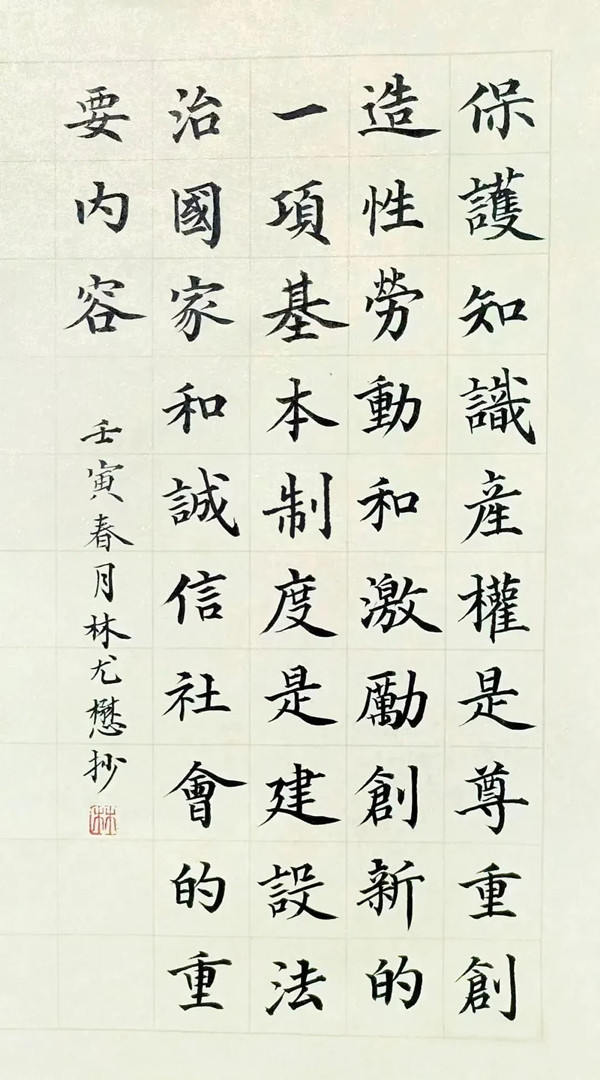 保護知識産權是尊重創
造性勞動和激勵創新的
一項基本制度是建設法
治國家和誠信社會的重
要内容
壬寅春月林尤懋抄
林